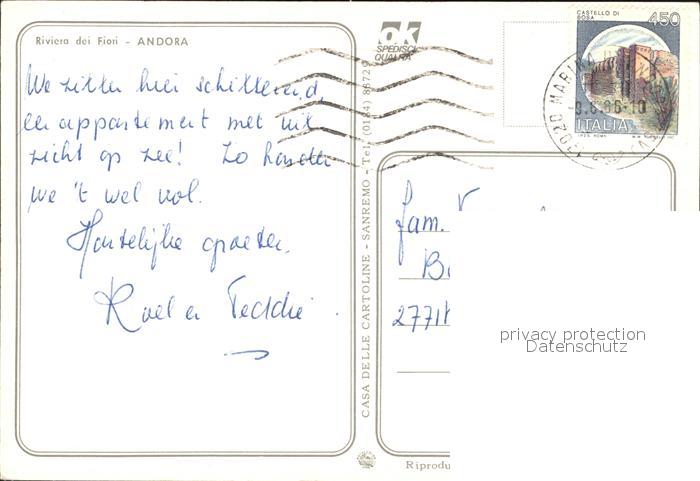 Riviera dei Fiori - ANDORA
We zitten hier schitterend,
een appartement met uit
zicht op zee! Zo houden
we 't wel vol.
Hartelijke groeten,
Roel en Teddie
CASA DELLE CARTOLINE - SANREMO - Tel. (0184) 88729
ok
SPEDISCI
QUALITÀ
CASTELLO DI
BOSA
450
ITALIA
17020 MARINA
-9.8.86-10
fam. V
B
2771
privacy protection
Datenschutz
Riprodu